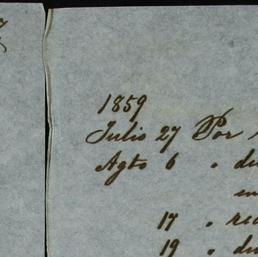 1859
Julio 27 Por
Agto 6 " du
17 " rec
19 " du